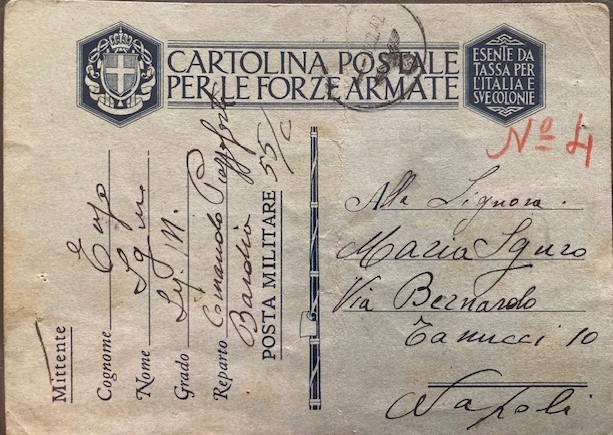 CARTOLINA POSTALE
PER LE FORZE ARMATE
ESENTE DA
TASSA PER
L'ITALIA E
SVE COLONIE
Nº 4
Alla Signora
Maria Sguro
Via Bernardo
Tanucci 10
Napoli
Mittente
Cognome
Nome
Grado
Reparto Comando Piazzaforte
Bardia
POSTA MILITARE 55/C